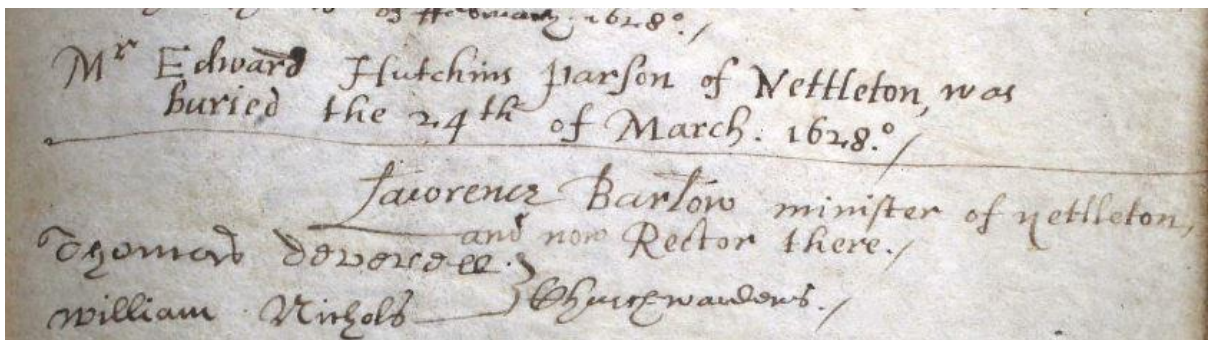 of February. 1628º./
Mr Edward Hutchins parson of Nettleton, was
buried the 24th of March. 1628.º/
Lawrence Barlow minister of nettleton,
and now Rector there./
Thomas Deverell
William Nichols } Churchwardens./